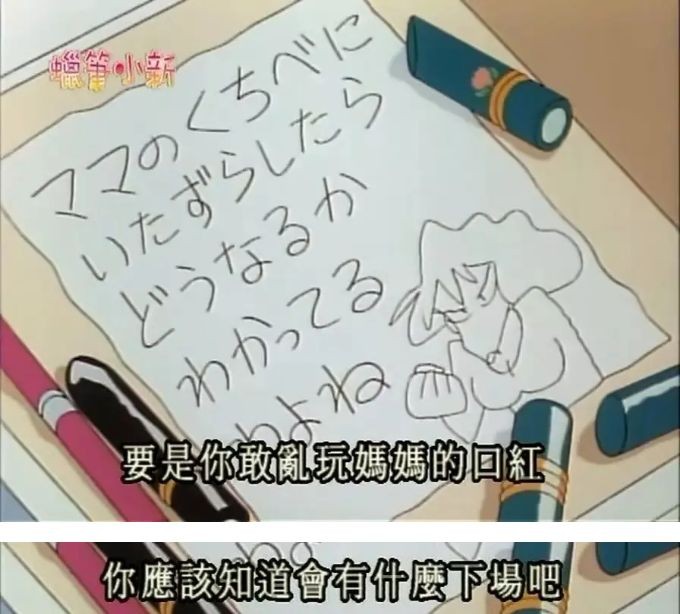 蠟筆·小新
ママのくちべに
いたずらしたら
どうなるか
わかってる
わよね
要是你敢亂玩媽媽的口紅
你應該知道會有什麼下場吧